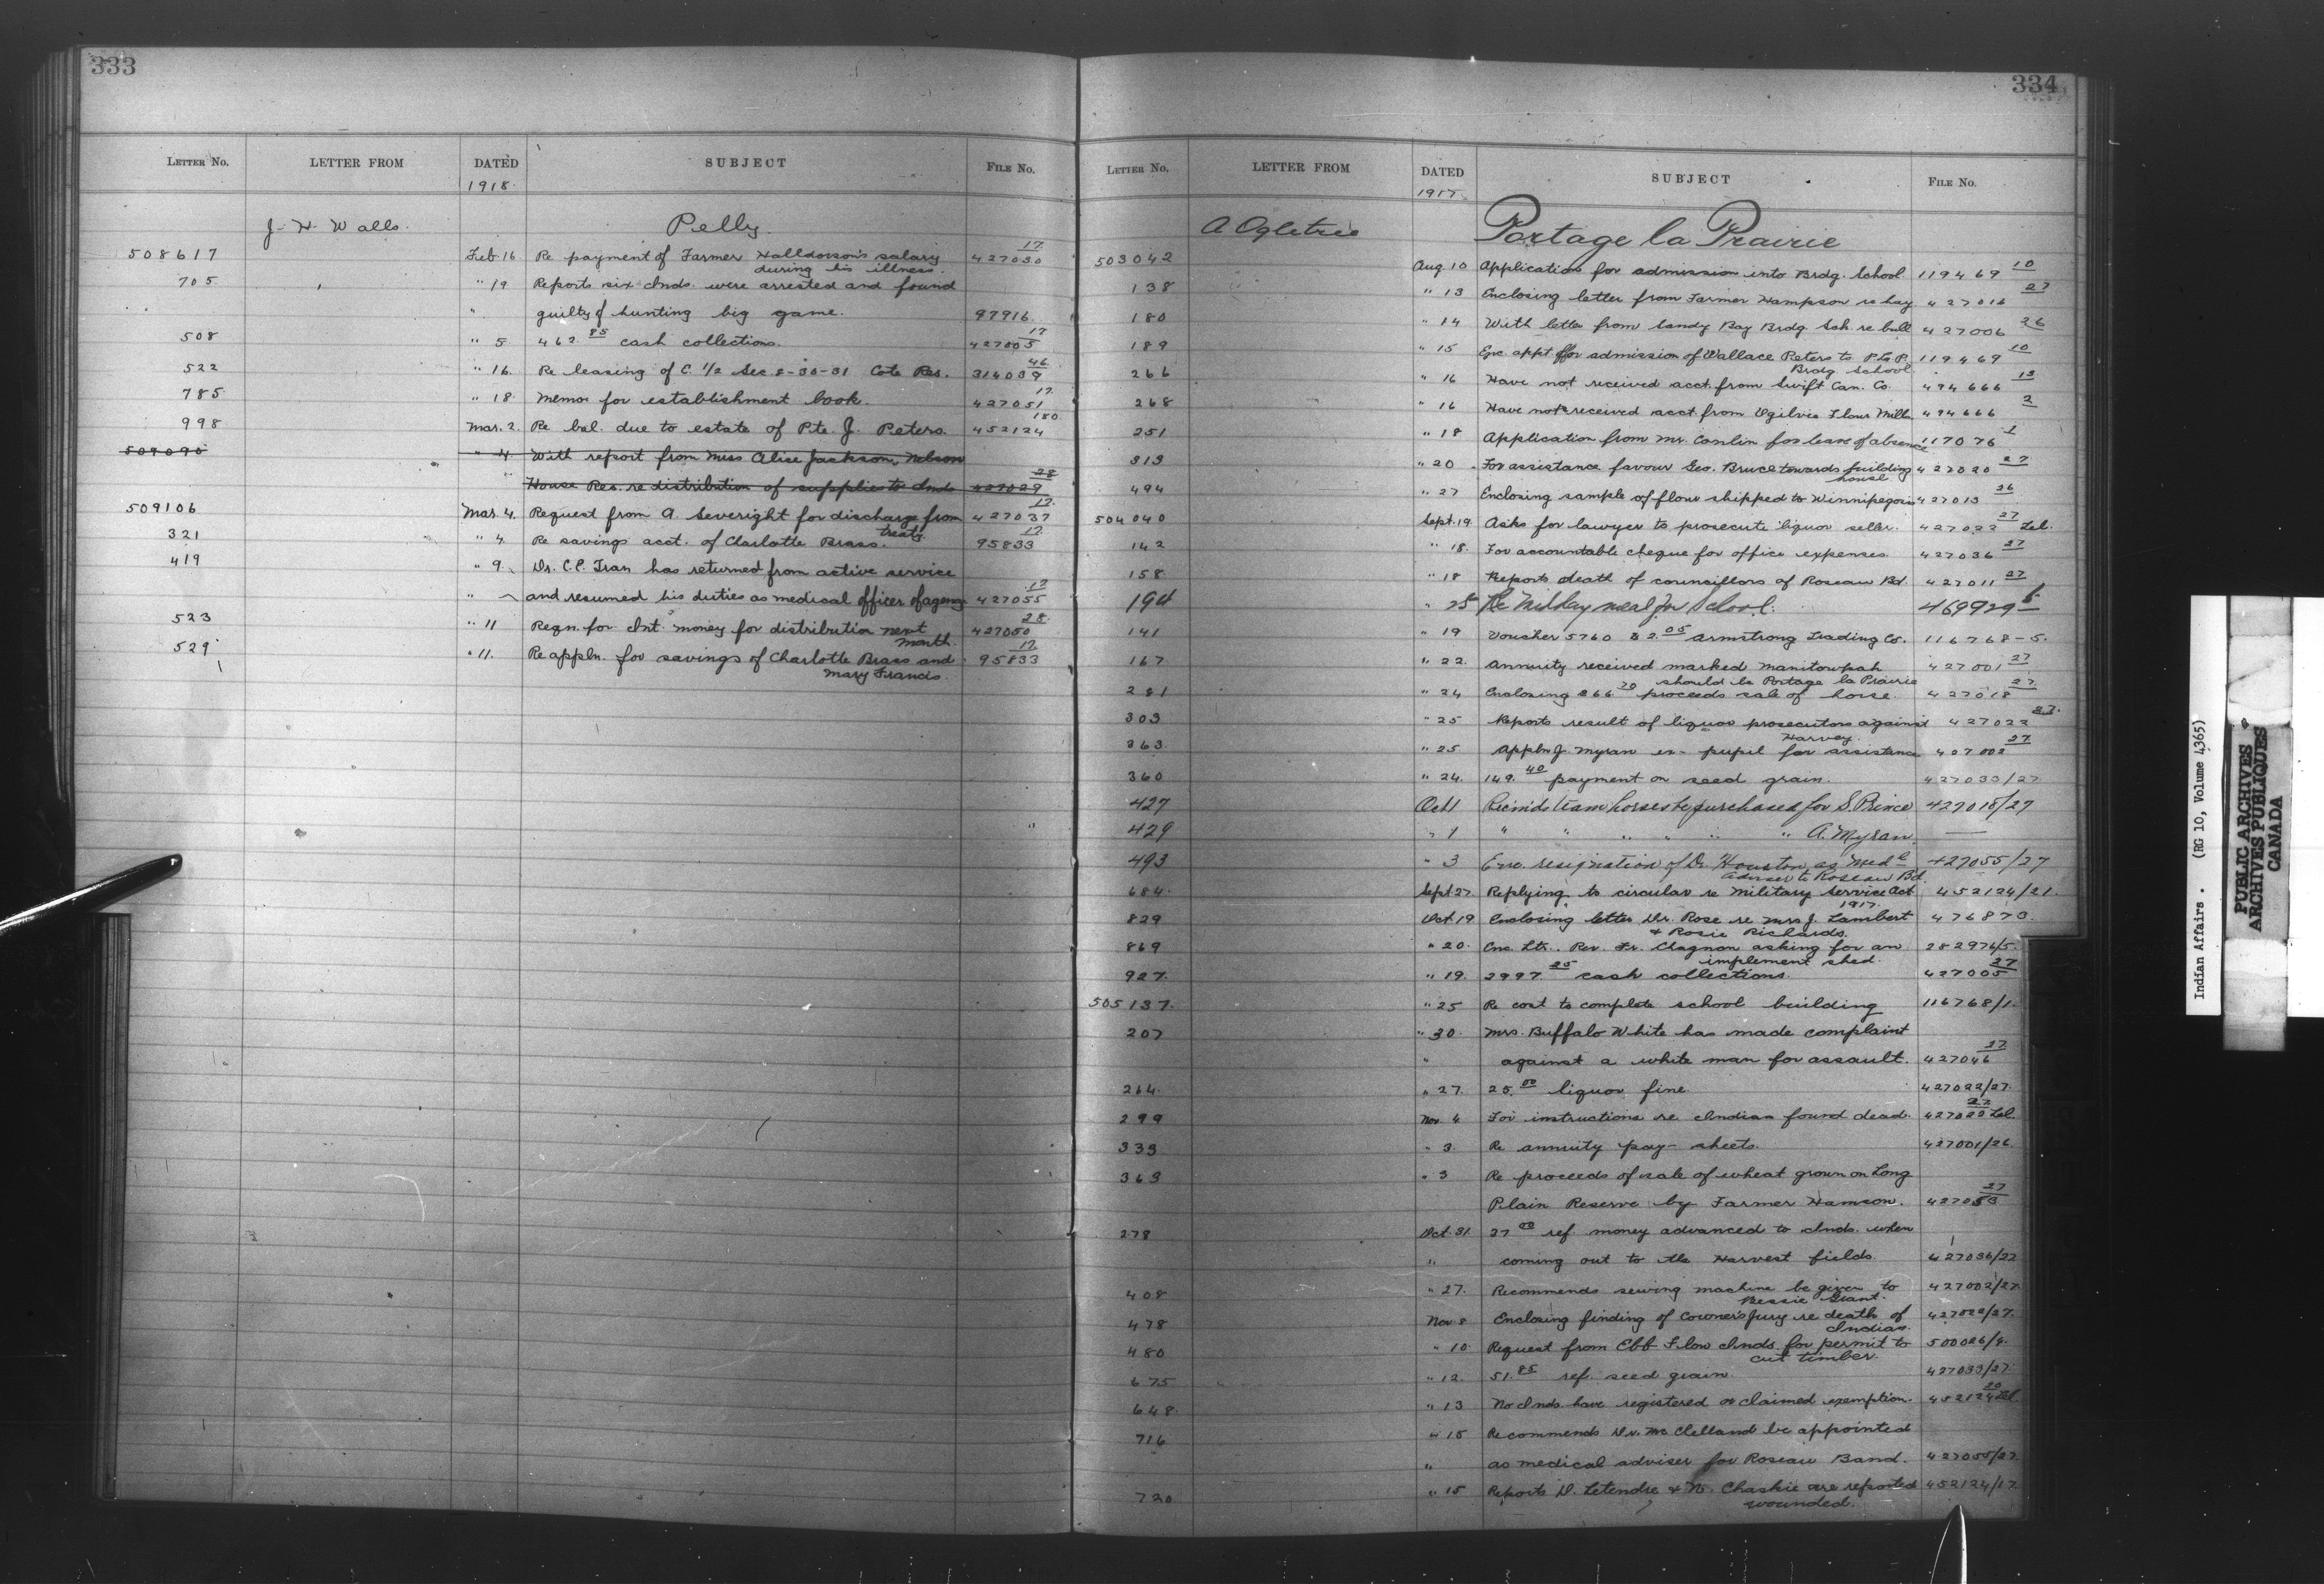 333
LETTER No. LETTER FROM DATED SUBJECT FILE No.
1918.
J. H. Walls. Pelly.
508617 Feb 16 Re payment of Farmer Halldorson's salary 427030 17
during his illness.
705 " 19 Reports six Inds. were arrested and found
" guilty of hunting big game. 97916.
508 " 5 462.85 cash collections. 427005 17
522 " 16. Re leasing of C. 1/2 Sec 2-30-31 Cote Res. 314039 46
785 " 18. Memo. for establishment book. 427051 17
998 Mar. 2. Re bal. due to estate of Pte. J. Peters. 452124 180
509090 " 4 With report from Miss Alice Jackson, Nelson
House Res. re distribution of supplies to Inds 427029 28
509106 Mar. 4. Request from A. Severight for discharge from 427037 17
treaty.
321 " 4 Re savings acct. of Charlotte Brass. 95833 17
419 " 9. Dr. C.E. Tran has returned from active service
" and resumed his duties as medical officer of agency 427055 17
523 " 11 Reqn. for Int. money for distribution next 427050 28
month.
529 " 11. Re appln. for savings of Charlotte Brass and 95833 17
Mary Francis.
334
LETTER No. LETTER FROM DATED SUBJECT FILE No.
1917.
A Ogletree Portage la Prairie
503042 Aug. 10 Application for admission into Brdg. School 119469 10
138 " 13 Enclosing letter from Farmer Hampson re hay 427016 27
180 " 14 With letter from Sandy Bay Brdg. Sch. re bull 427006 26
189 " 15 Enc. appt. for admission of Wallace Peters to P. la P. 119469 10
Brdg. School
266 " 16 Have not received acct. from Swift Can. Co. 494666 13
268 " 16 Have not received acct. from Ogilvie Flour Mills 494666 2
251 " 18 Application from Mr. Conlin for leave of absence 117076 1
313 " 20 For assistance favour Geo. Bruce towards building 427020 27
house.
494 " 27 Enclosing sample of flour shipped to Winnipegosis 427013 26
504040 Sept. 19. Asks for lawyer to prosecute liquor seller. 427022 27 Tel.
142 " 18. For accountable cheque for office expenses 427036 27
158 " 18 Reports death of councillors of Roseau Bd. 427011 27
194 " 25 Re Midday meal for School. 469929 5
141 " 19 Voucher 5760 $2.05 Armstrong Trading Co. 116768-5.
167 " 22. Annuity received marked Manitowpah 427001 27
should be Portage la Prairie
281 " 24 Enclosing $66.70 proceeds sale of horse. 427018 27
303 " 25 Reports result of liquor prosecutors against 427022 27
Harvey.
363 " 25 Appln J. Myran ex-pupil for assistance 427002 27
360 " 24. 149.40 payment on seed grain. 427033/27
427 Oct 1 Recm'ds team horses be purchased for S. Prince 427018/27
429 " 1 " " " " " " A. Myran —
493 " 3 Enc. resignation of Dr. Houston as Med'l 427055/27
Adviser to Roseau Bd.
684. Sept 27 Replying to circular re Military Service Act 452124/21.
1917.
829 Oct. 19 Enclosing letter Dr. Rose re Mrs. J. Lambert 476873.
& Rosie Richards.
869 " 20. Enc. Ltr. Rev. Fr. Chagnon asking for an 282976/5.
implement shed.
927. " 19. 2997.25 cash collections. 427005 27
505137. " 25 Re cost to complete school building 116768/1.
207 " 30. Mrs. Buffalo White has made complaint
" against a white man for assault. 427046 27
264. " 27. 25.00 liquor fine 427022/27.
299 Nov. 4 For instructions re Indian found dead. 427022 27 Tel.
333 " 3. Re annuity pay-sheets. 427001/26.
363 " 3 Re proceeds of sale of wheat grown on Long
Plain Reserve by Farmer Hamson. 427053 27
278 Oct. 31. 27.00 ref. money advanced to Inds. when
" coming out to the Harvest fields. 427036/27
408 " 27. Recommends sewing machine be given to 427002/27.
Bessie Grant.
478 Nov 8 Enclosing finding of Coroner's Jury re death of 427022/27.
Indian.
480 " 10. Request from Ebb Flow Inds. for permit to 500026/4.
cut timber.
675 " 12. 51.85 ref. seed grain. 427033/27.
648. " 13 No Inds. have registered or claimed exemption. 452124 20 Tel.
716 " 15 Recommends Dr. McClelland be appointed
" as medical adviser for Roseau Band. 427055/27.
720 " 15 Reports D. Letendre & N. Chaskie are reported 452124/17.
wounded.
Indian Affairs. (RG 10, Volume 4365)
PUBLIC ARCHIVES
ARCHIVES PUBLIQUES
CANADA